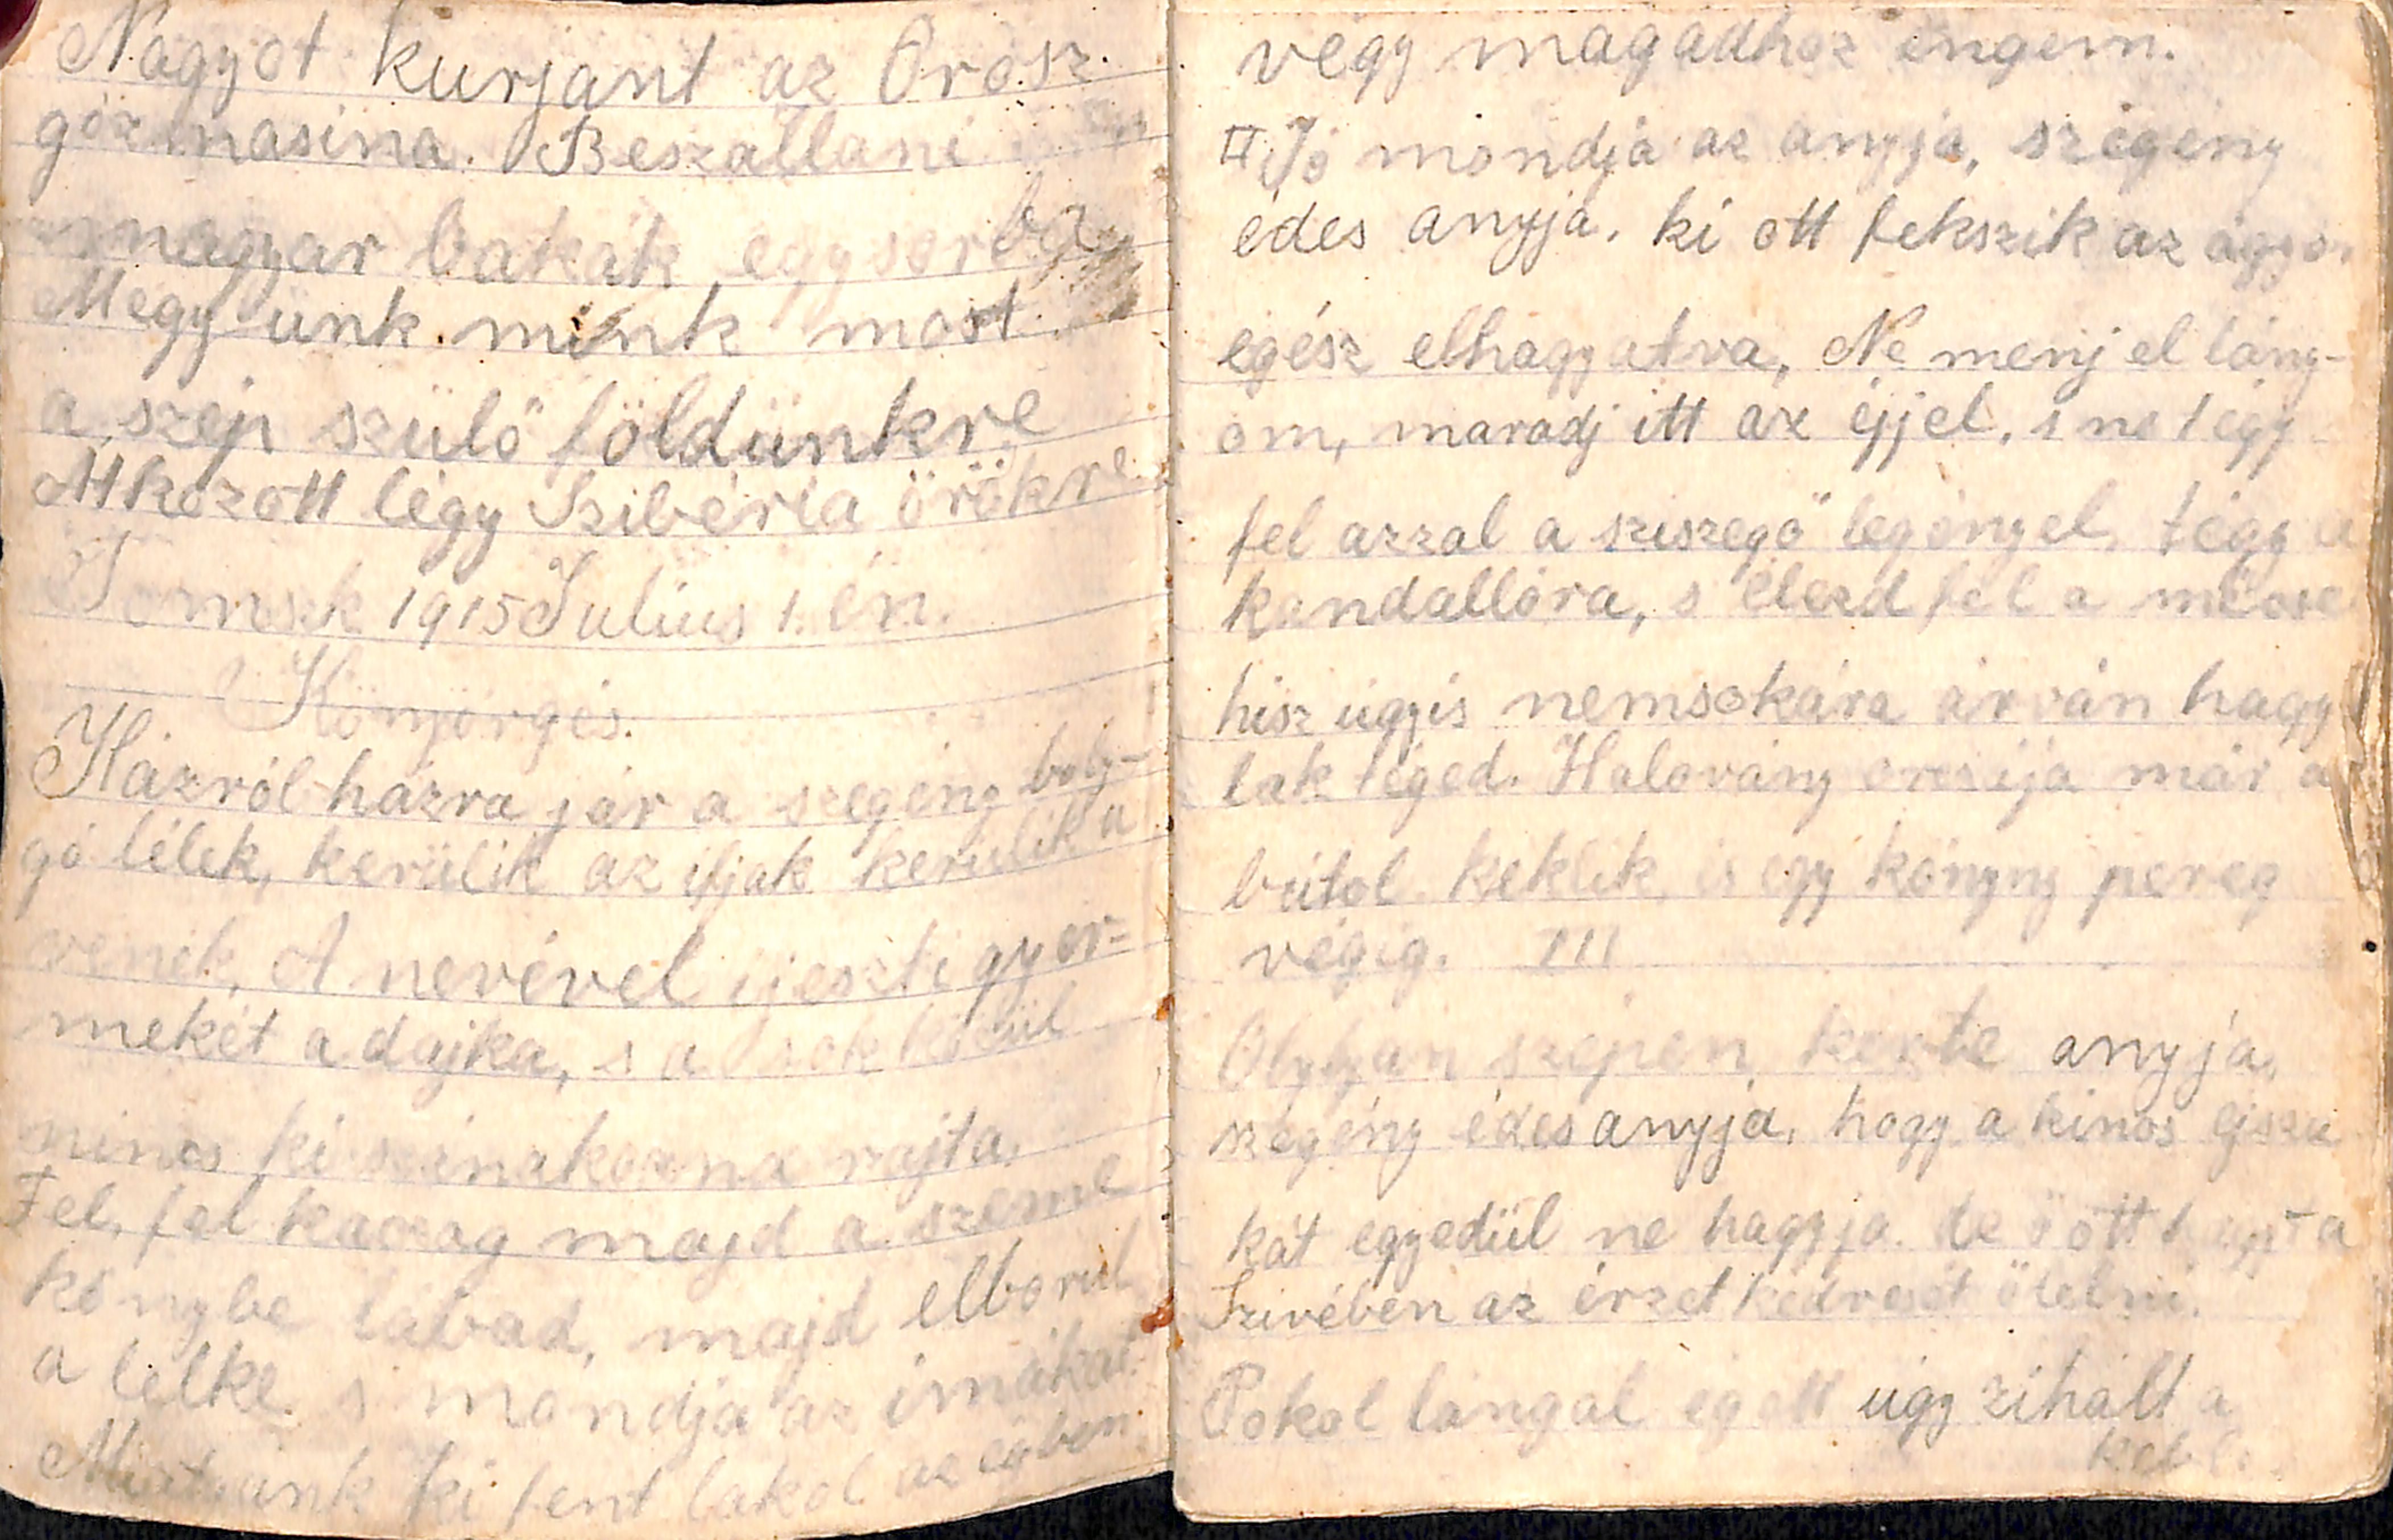 Nagyot kurjant az Orosz
gőzmasina. Beszállani
magyar bakák egysorba
Megyünk mink most
a szép szülő földünkre
Átkozott légy Szibéria örökre
Tomszk 1915 Julius 1. én.
Könyörgés.
Házról házra jár a szegény boly-
gó lélek, kerülik az ifjak kerülik a
vének, A nevével ijeszti gyer=
mekét a dajka, s a sok közül
nincs ki szánakozna rajta.
Fel, fel kaczag majd a szeme
könybe lábad, majd elborul
a lelke s mondja az imákat.
Miatyánk ki fent lakol az égben
végy magadhoz engem.
II Jó mondja az anyja, szegény
édes anyja. ki ott fekszik az ágyo.
egész elhagyatva, Ne menj el lány-
om, maradj itt az éjjel. s ne légy
fel azzal a sziszegő legényel, tégy a
kandallóra, s éleszd fel a
hisz úgyis nemsokára árván hagy
lak téged. Halovány orczája már a
bútol keklik, is egy könyny pereg
végig. III
Olylyan szépen kerte anyja,
szegény édes anyja, hogy a kinos ejsza
kát egyedül ne hagyja. de ő ott hagyta
Szivében az érzet kedvesét ölelni.
Pokol lángal égett úgy zihált a
kebl.